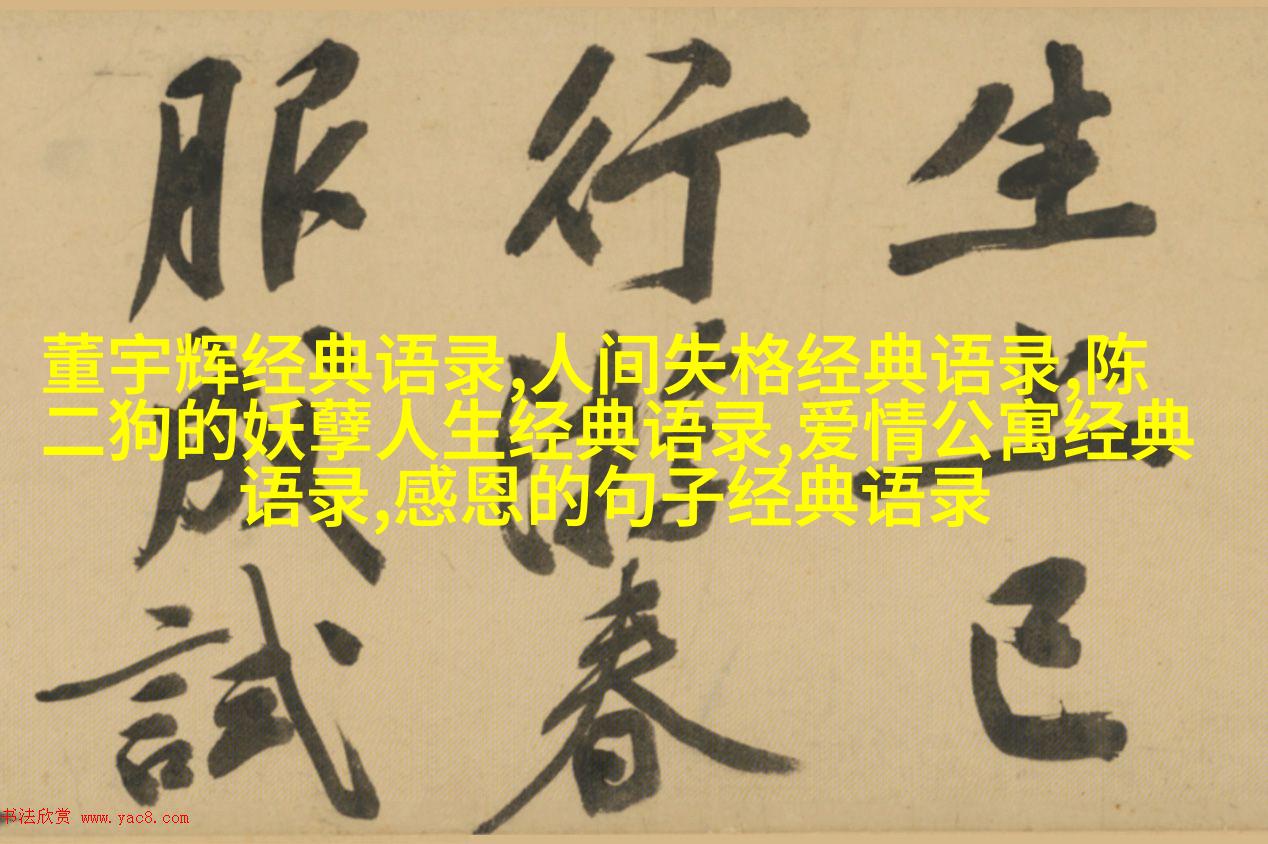 生上巳
行春
服成試
董宇辉经典语录,人间失格经典语录,陈
二狗的妖孽人生经典语录,爱情公寓经典
语录,感恩的句子经典语录
书法欣赏 www.yac8.com